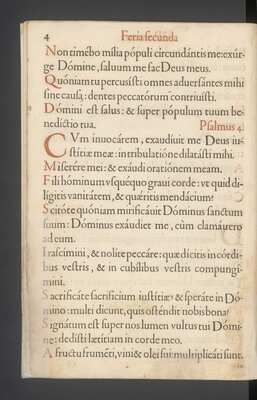 4 Feria secunda
Non timébo míllia pópuli circundántis me: exúr-
ge Dómine, saluum me fac Deus meus.
Quóniam tu percussísti omnes aduersántes mihi
sine causa: dentes peccatórum contriuísti.
Dómini est salus: & super pópulum tuum be-
nedíctio tua. Psalmus 4.
CVm inuocárem, exaudíuit me Deus iu-
stítiæ meæ: in tribulatióne dilatásti mihi.
Miserére mei: & exáudi oratiónem meam.
Fílii hóminum vsquéquo graui corde: vt quid di-
lígitis vanitátem, & quæritis mendácium?
Scitóte quóniam mirificáuit Dóminus sanctum
suum: Dóminus exáudiet me, cùm clamáuero
ad eum.
Irascímini, & nolíte peccáre: quæ dícitis in córdi-
bus vestris, & in cubílibus vestris compungí-
mini.
Sacrificáte sacrifícium iustítiæ, & speráte in Dó-
mino: multi dicunt, quis osténdit nobis bona?
Signátum est super nos lumen vultus tui Dómi-
ne: dedísti lætítiam in corde meo.
A fructu fruménti, vini, & ólei sui: multiplicáti sunt.